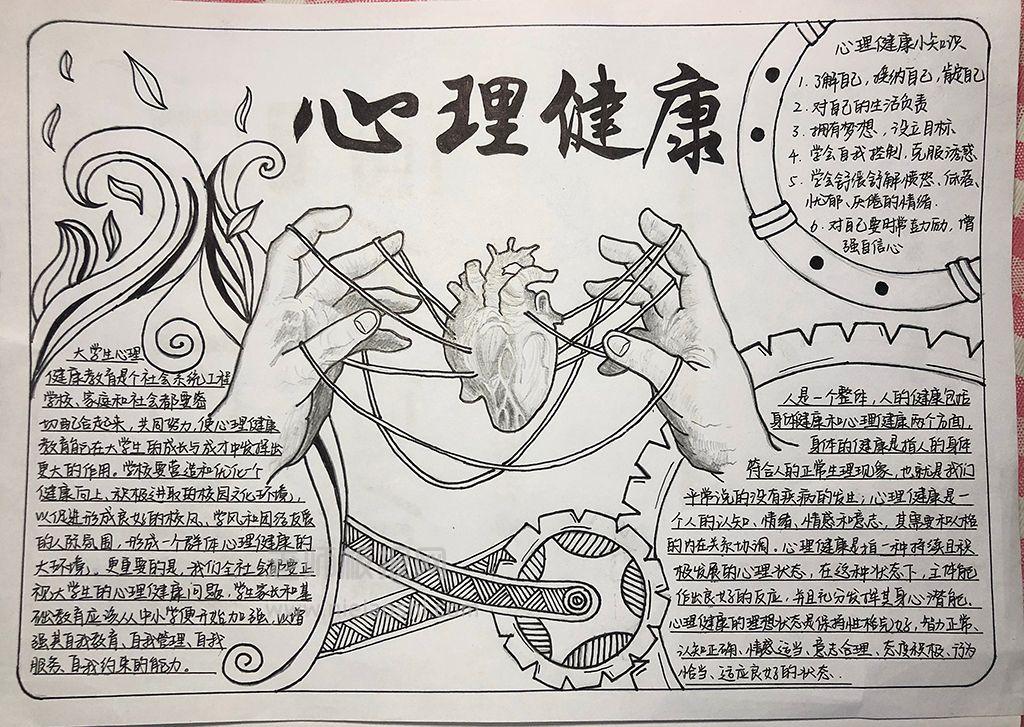 心理健康
心理健康小知识
1. 了解自己，接纳自己，肯定自己
2. 对自己的生活负责
3. 拥有梦想，设立目标
4. 学会自我控制，克服诱惑
5. 学会舒缓舒解愤怒、低落、
忧郁、厌倦的情绪.
6. 对自己要时常鼓励，增
强自信心
大学生心理
健康教育是个社会系统工程
学校、家庭和社会都要密
切配合起来，共同努力，使心理健康
教育能在大学生的成长与成才中发挥出
更大的作用。学校要营造和优化一个
健康向上、积极进取的校园文化环境，
以促进形成良好的校风、学风和团结友爱
的人际氛围，形成一个群体心理健康的
大环境。更重要的是，我们全社会都要正
视大学生的心理健康问题，学生家长和基
础教育应该从中小学便开始加强，以增
强其自我教育、自我管理、自我
服务、自我约束的能力。
人是一个整体，人的健康包括
身体健康和心理健康两个方面，
身体的健康是指人的身体
符合人的正常生理现象，也就是我们
平常说的没有疾病的发生；心理健康是一
个人的认知、情绪、情感和意志，其需要和人格
的内在关系协调。心理健康是指一种持续且积
极发展的心理状态，在这种状态下，主体能
作出良好的反应，并且充分发挥其身心潜能。
心理健康的理想状态是保持性格完好、智力正常、
认知正确、情感适当、意志合理、态度积极、行为
恰当、适应良好的状态.